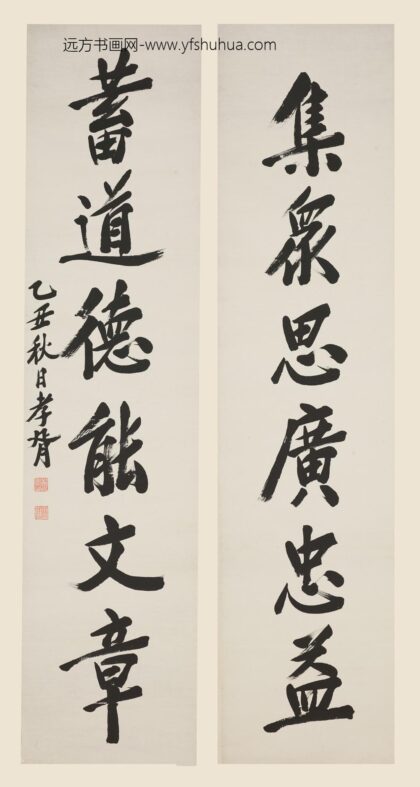 远方书画网-www.yfshuhua.com
集衆思廣忠益
蓄道德能文章
乙丑秋日孝胥